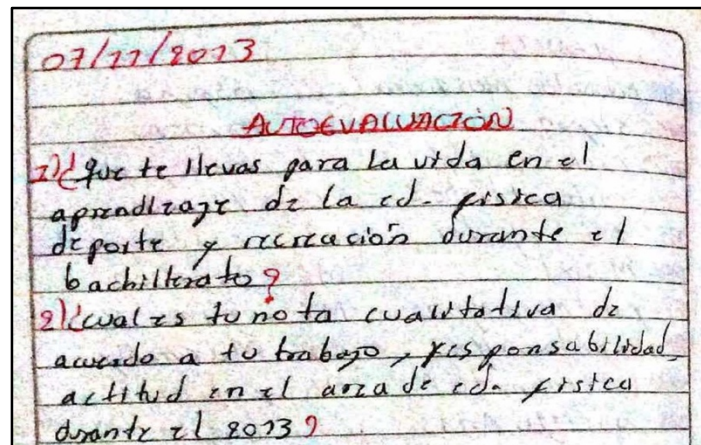 07/11/2013
AUTOEVALUACIÓN
1)¿que te llevas para la vida en el
aprendizaje de la ed. fisica
deporte y recreación durante el
bachillerato?
2)¿cual es tu nota cualitativa de
acuerdo a tu trabajo, responsabilidad,
actitud en el area de ed. fisica
durante el 2013?